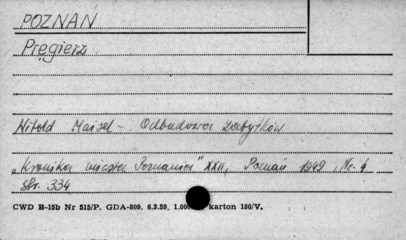 POZNAŃ
Pręgierz
Witold Maisel - Odbudowa Zabytków
"Kronika miasta Poznania" XXII, Poznań 1949, Nr. 4
Str. 334
CWD B-15b Nr 515/P. GDA-809. 6.3.59. 1.000 karton 180/V.